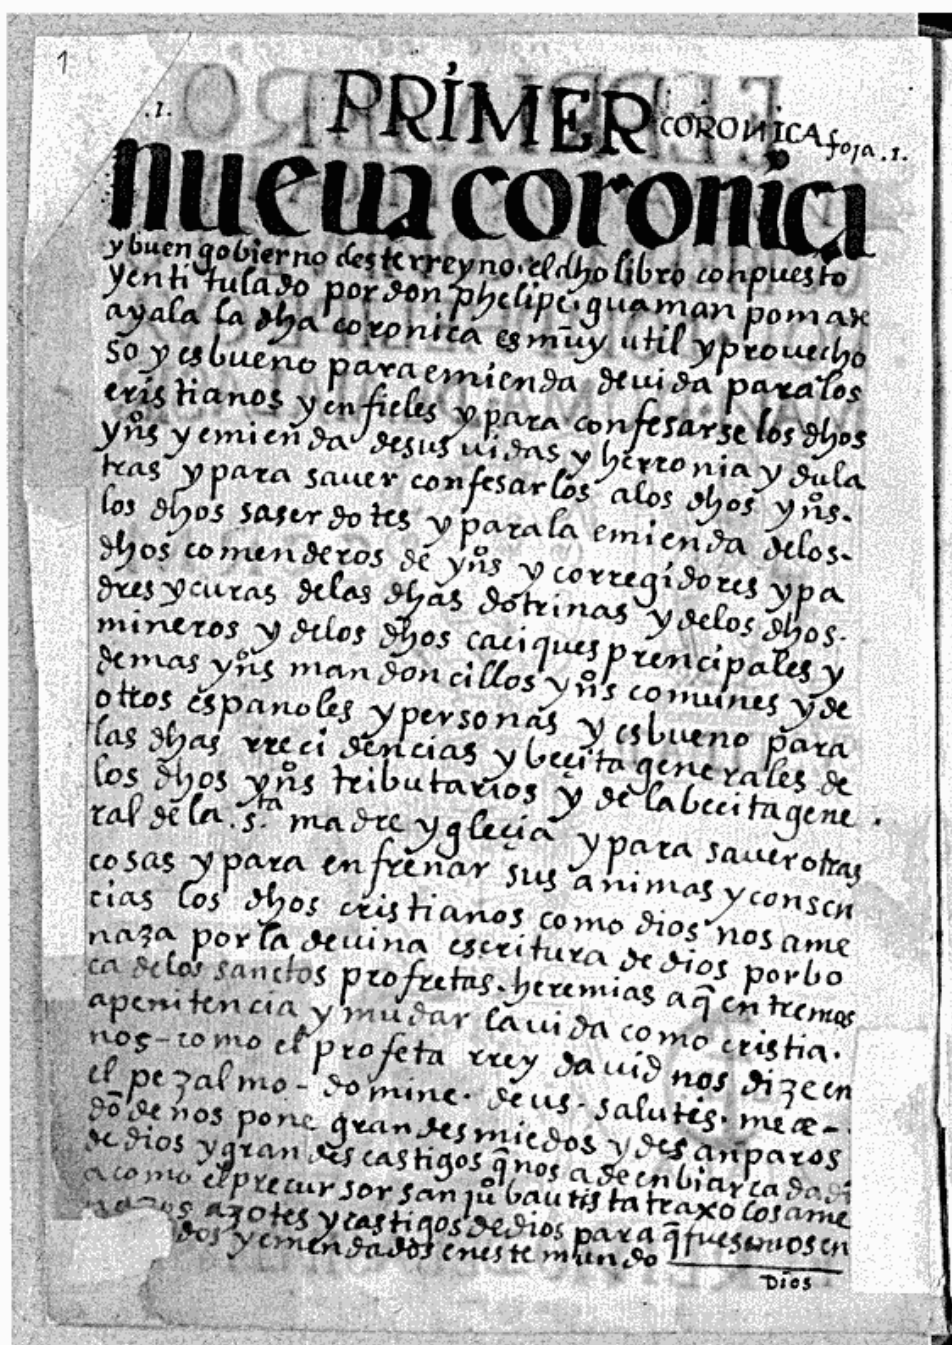 1
.1.
PRÍMER CORONICA foja .1.
nueua coronica
y buen gobierno deste rreyno. el dho libro conpuesto
y entitulado por don phelipe. guaman poma de
ayala la dha coronica es muy util y prouecho
so y es bueno para emienda de uida para los
cristianos y enfieles y para confesarse los dhos
yns y emienda de sus uidas y herronia y dula
tras y para sauer confesarlos a los dhos yns.
los dhos saserdotes y para la emienda de los-
dhos comenderos de yns y corregidores y pa
dres y curas de las dhas dotrinas y de los dhos.
mineros y de los dhos caciques prencipales y
demas yns mandoncillos yns comunes y de
otros espanoles y personas y es bueno para
las dhas rrecidencias y beçita generales de
los dhos yns tributarios y de la becita gene.
ral de la .s.ta madre ygleçia y para sauer otras
cosas y para enfrenar sus animas y consen
cias los dhos cristianos como dios nos ame
naza por la deuina escritura de dios por bo
ca de los sanctos profretas. heremias a q̃ entremos
a penitencia y mudar la uida como cristia.
nos-como el profeta rrey dauid nos dize en
el pezalmo - domine. deus. salutis. meae-.
dõde nos pone grandes miedos y desanparos
de dios y grandes castigos q̃ nos a de enbiar cada di
a como el precursor san ju.o bautista traxo los ame
nazos azotes y castigos de dios para q̃ fuesemos en
dos y emendados en este mundo
Dios